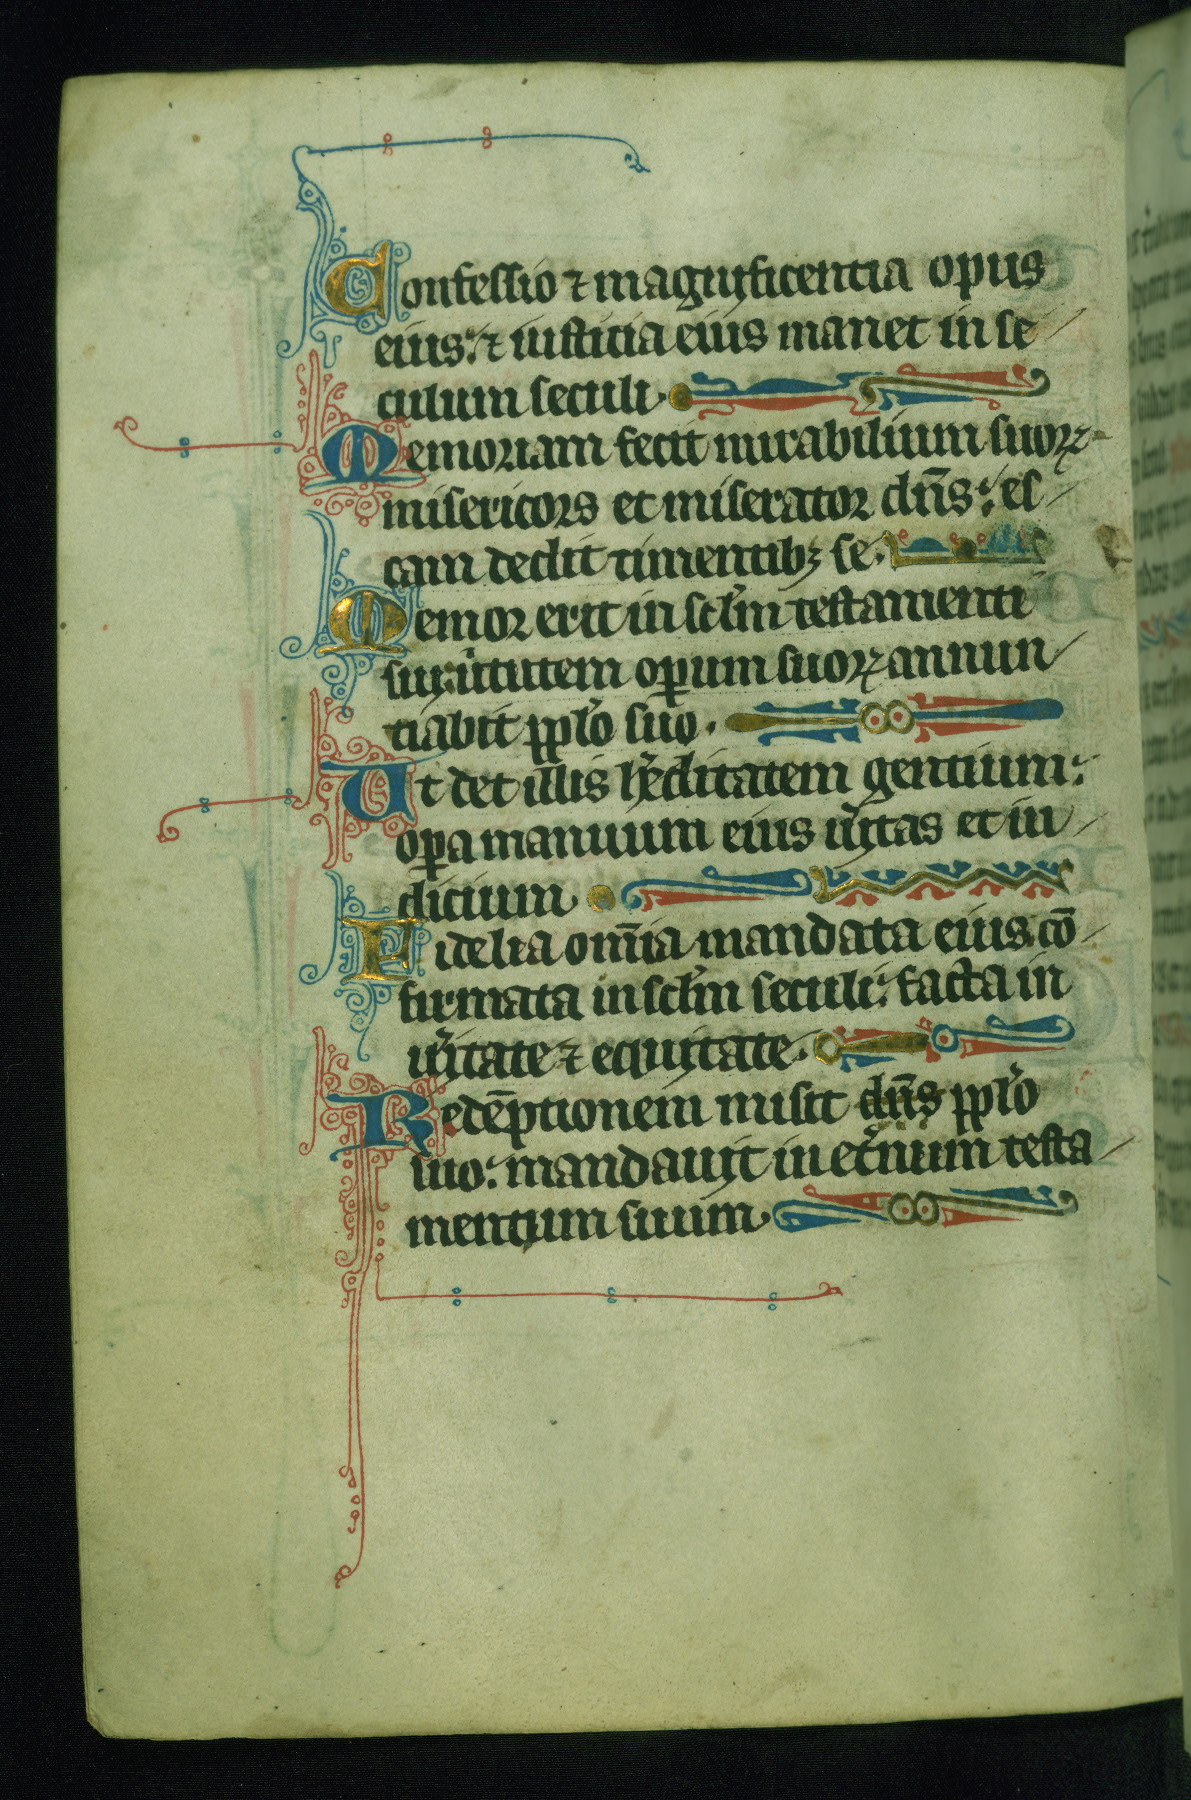 Confessio ⁊ magnyficentia opus
eius: ⁊ iusticia eius manet in se
culum seculi.
Memoriam fecit mirabilium suoꝝ
misericors et miserator dn̄s: es
cam dedit timentibꝫ se.
Memor erit in sclm̄ testamenti
suy: v̾tutem oꝑum suoꝝ annun
tiabit pplo̾ suo.
Ut det illis h̾editatem gentium:
oꝑa manuum eius v̾ytas et iu
dicium
Fidelia om̄ia mandata eius: cō
firmata in sclm̄ seculi: facta in
v̾ytate ⁊ equytate.
Redēptionem misit dn̄s pplo̾
suo: mandauyt in et̾num testa
mentum suum